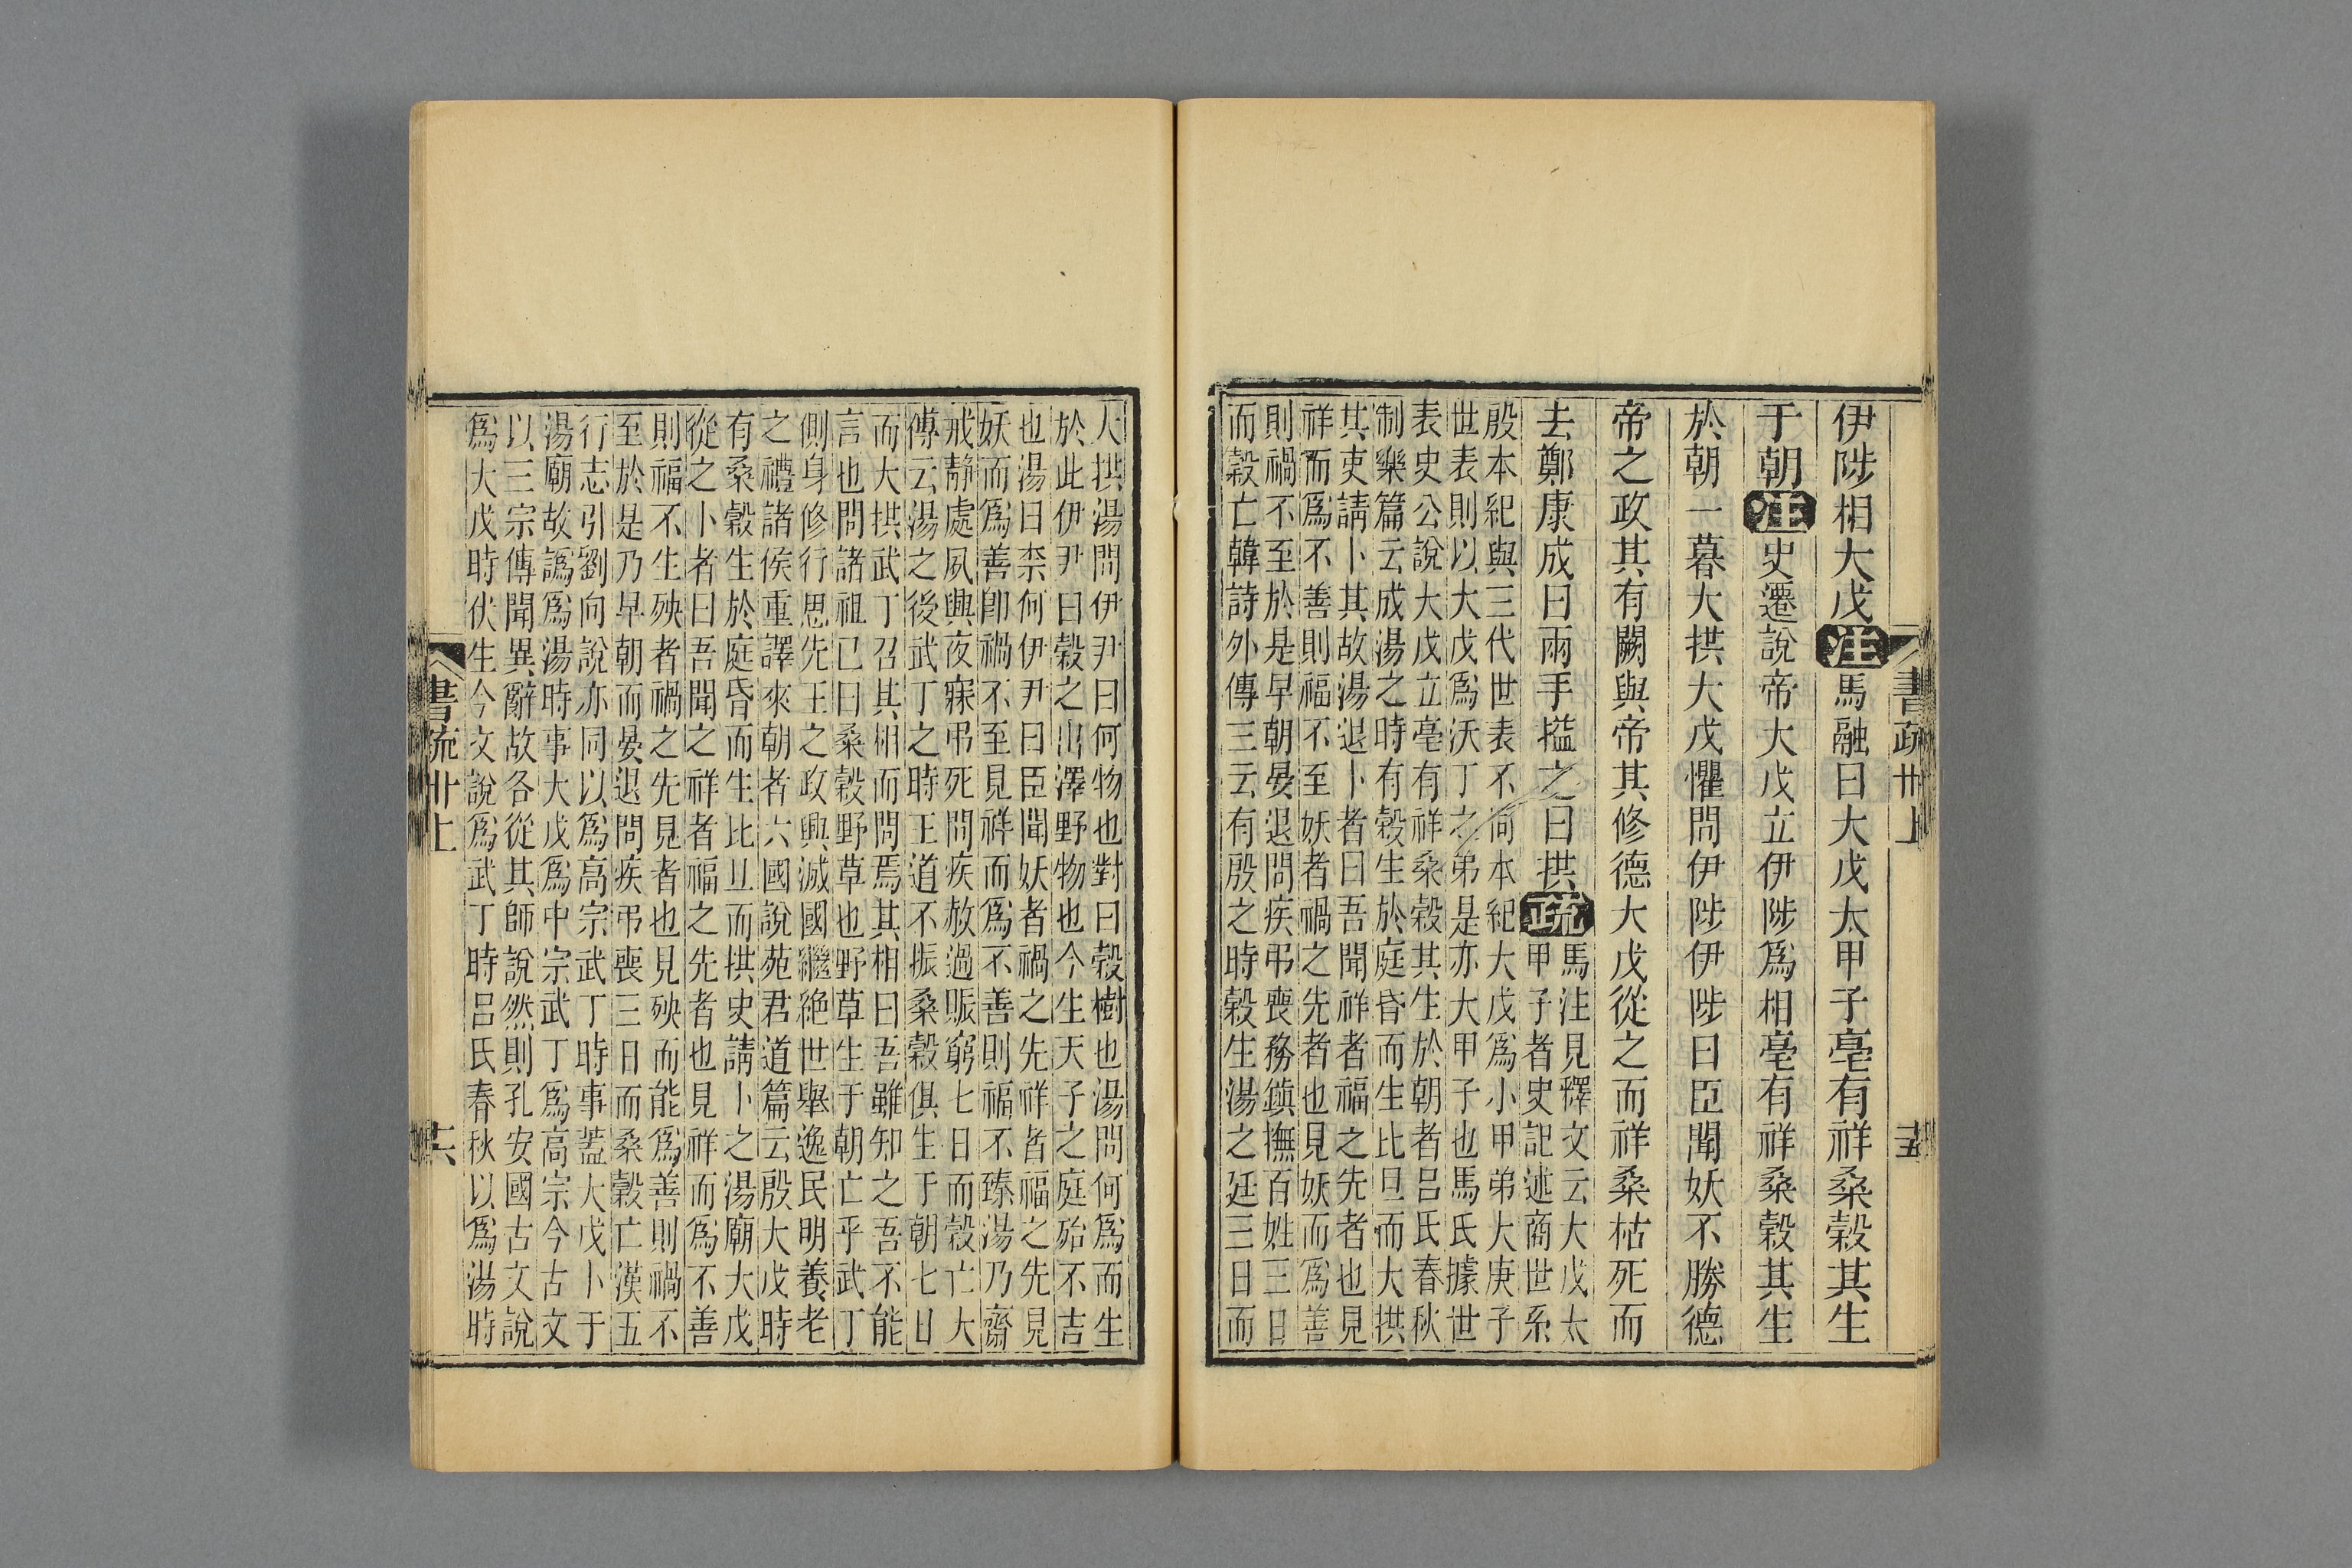 書疏卅上
十五
伊陟相大戊注馬融曰大戊太甲子亳有祥桑穀其生
于朝注史遷說帝大戊立伊陟爲相亳有祥桑穀其生
於朝一暮大拱大戊懼問伊陟伊陟曰臣聞妖不勝德
帝之政其有闕與帝其修德大戊從之而祥桑枯死而
去鄭康成曰兩手搤之曰拱疏馬注見釋文云大戊太
甲子者史記述商世系
殷本紀與三代世表不同本紀大戊爲小甲弟大庚子
世表則以大戊爲沃丁之弟是亦大甲子也馬氏據世
表史公說大戊立亳有祥桑穀其生於朝者呂氏春秋
制樂篇云成湯之時有穀生於庭昏而生比旦而大拱
其吏請卜其故湯退卜者曰吾聞祥者福之先者也見
祥而爲不善則福不至妖者禍之先者也見妖而爲善
則禍不至於是早朝晏退問疾弔喪務鎮撫百姓三日
而穀亡韓詩外傳三云有殷之時穀生湯之廷三日而
大拱湯問伊尹曰何物也對曰穀樹也湯問何爲而生
於此伊尹曰穀之出澤野物也今生天子之庭殆不吉
也湯曰柰何伊尹曰臣聞妖者禍之先祥者福之先見
妖而爲善卽禍不至見祥而爲不善則福不臻湯乃齋
戒靜處夙興夜寐弔死問疾赦過賑窮七日而穀亡大
傳云湯之後武丁之時王道不振桑穀俱生于朝七日
而大拱武丁召其相而問焉其相曰吾雖知之吾不能
言也問諸祖己曰桑穀野草也野草生于朝亡乎武丁
側身修行思先王之政興滅國繼絕世舉逸民明養老
之禮諸侯重譯來朝者六國說苑君道篇云殷大戊時
有桑穀生於庭昏而生比旦而拱史請卜之湯廟大戊
從之卜者曰吾聞之祥者福之先者也見祥而爲不善
則福不生殃者禍之先見者也見殃而能爲善則禍不
至於是乃早朝而晏退問疾弔喪三日而桑穀亡漢五
行志引劉向說亦同以爲高宗武丁時事葢大戊卜于
湯廟故譌爲湯時事大戊爲中宗武丁爲高宗今古文
以三宗傳聞異辭故各從其師說然則孔安國古文說
爲大戊時伏生今文說爲武丁時呂氏春秋以爲湯時
書疏卅上
十六